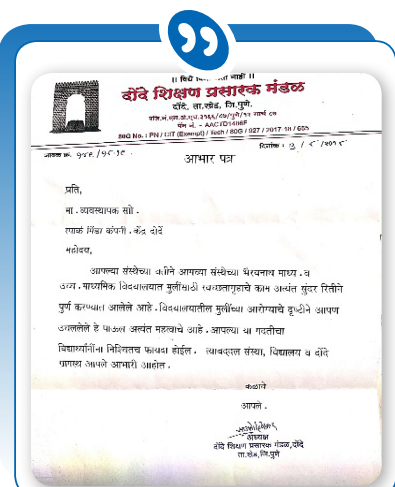 ।। विद्ये विना गती नाही ।।
दोंदे शिक्षण प्रसारक मंडळ
दोंदे, ता.खेड, जि.पुणे.
80G No. : PN / CIT (Exempt) / Tech / 80G / 927 / 2017-18 / 655
जावक क्र.
दिनांक :
आभार पत्र
प्रति,
मा. व्यवस्थापक सो.
स्पार्क मिंडा कंपनी. केंद्र दोंदे
महोदय,
आपल्या संस्थेच्या वतीने आमच्या संस्थेच्या भैरवनाथ माध्य. व
उच्च. माध्यमिक विद्यालयात मुलींसाठी स्वच्छतागृहाचे काम अत्यंत सुंदर रितीने
पुर्ण करण्यात आलेले आहे. विद्यालयातील मुलींच्या आरोग्याचे दृष्टीने आपण
उचललेले हे पाऊल अत्यंत महत्वाचे आहे. आपल्या या मदतीचा
विद्यार्थ्यांनींना निश्चितच फायदा होईल. त्याबद्दल संस्था, विद्यालय व दोंदे
ग्रामस्थ आपले आभारी आहोत.
कळावे
आपले.
अध्यक्ष
दोंदे शिक्षण प्रसारक मंडळ, दोंदे
ता.खेड, जि.पुणे